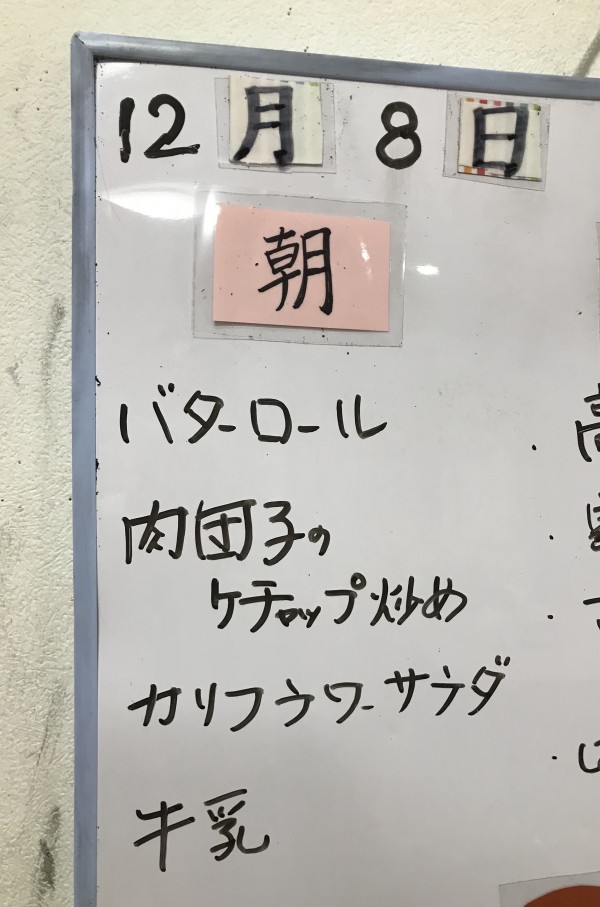 12月8日
朝
バターロール
肉団子の
ケチャップ炒め
カリフラワーサラダ
牛乳